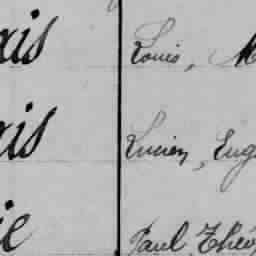 xis Louis, M
xis Lucien, Eug
ie Paul, Théo